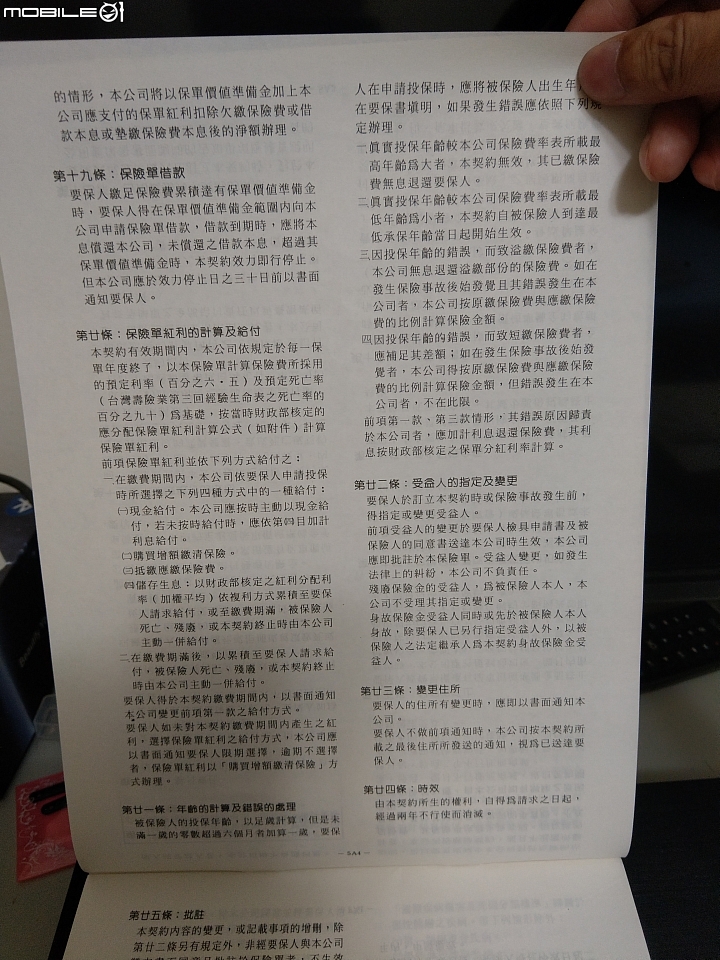 MOBILE01
的情形，本公司將以保單價值準備金加上本
公司應支付的保單紅利扣除欠繳保險費或借
款本息或墊繳保險費本息後的淨額辦理。
第十九條：保險單借款
要保人繳足保險費累積達有保單價值準備金
時，要保人得在保單價值準備金範圍內向本
公司申請保險單借款，借款到期時，應將本
息償還本公司，未償還之借款本息，超過其
保單價值準備金時，本契約效力即行停止。
但本公司應於效力停止日之三十日前以書面
通知要保人。
第廿條：保險單紅利的計算及給付
本契約有效期間內，本公司依規定於每一保
單年度終了，以本保險單計算保險費所採用
的預定利率（百分之六·五）及預定死亡率
（台灣壽險業第三回經驗生命表之死亡率的
百分之九十）爲基礎，按當時財政部核定的
應分配保險單紅利計算公式（如附件）計算
保險單紅利。
前項保險單紅利並依下列方式給付之：
一在繳費期間內，本公司依要保人申請投保
時所選擇之下列四種方式中的一種給付：
㈠現金給付。本公司應按時主動以現金給
付，若未按時給付時，應依第四日加計
利息給付。
㈡購買增額繳清保險。
㈢抵繳應繳保險費。
㈣儲存生息：以財政部核定之紅利分配利
率（加權平均）依複利方式累積至要保
人請求給付，或至繳費期滿，被保險人
死亡、殘廢，或本契約終止時由本公司
主動一併給付。
二在繳費期滿後，以累積至要保人請求給
付，被保險人死亡、殘廢，或本契約終止
時由本公司主動一併給付。
要保人得於本契約繳費期間內，以書面通知
本公司變更前項第一款之給付方式。
要保人如未對本契約繳費期間內產生之紅
利，選擇保險單紅利之給付方式，本公司應
以書面通知要保人限期選擇，逾期不選擇
者，保險單紅利以「購買增額繳清保險」方
式辦理。
第廿一條：年齡的計算及錯誤的處理
被保險人的投保年齡，以足歲計算，但是未
滿一歲的零數超過六個月者加算一歲，要保
人在申請投保時，應將被保險人出生年
在要保書塡明，如果發生錯誤應依照下列規
定辦理。
一眞實投保年齡較本公司保險費率表所載最
高年齡爲大者，本契約無效，其已繳保險
費無息退還要保人。
二眞實投保年齡較本公司保險費率表所載最
低年齡爲小者，本契約自被保險人到達最
低承保年齡當日起開始生效。
三因投保年齡的錯誤，而致溢繳保險費者，
本公司無息退還溢繳部份的保險費。如在
發生保險事故後始發覺且其錯誤發生在本
公司者，本公司按原繳保險費與應繳保險
費的比例計算保險金額。
四因投保年齡的錯誤，而致短繳保險費者，
應補足其差額；如在發生保險事故後始發
覺者，本公司得按原繳保險費與應繳保險
費的比例計算保險金額，但錯誤發生在本
公司者，不在此限。
前項第一款、第三款情形，其錯誤原因歸責
於本公司者，應加計利息退還保險費，其利
息按財政部核定之保單分紅利率計算。
第廿二條：受益人的指定及變更
要保人於訂立本契約時或保險事故發生前，
得指定或變更受益人。
前項受益人的變更於要保人檢具申請書及被
保險人的同意書送達本公司時生效，本公司
應即批註於本保險單。受益人變更，如發生
法律上的糾紛，本公司不負責任。
殘廢保險金的受益人，爲被保險人本人，本
公司不受理其指定或變更。
身故保險金受益人同時或先於被保險人本人
身故，除要保人已另行指定受益人外，以被
保險人之法定繼承人爲本契約身故保險金受
益人。
第廿三條：變更住所
要保人的住所有變更時，應即以書面通知本
公司。
要保人不做前項通知時，本公司按本契約所
載之最後住所所發送的通知，視爲已送達要
保人。
第廿四條：時效
由本契約所生的權利，自得爲請求之日起，
經過兩年不行使而消滅。
第廿五條：批註
本契約內容的變更，或記載事項的增刪，除
第廿二條另有規定外，非經要保人與本公司